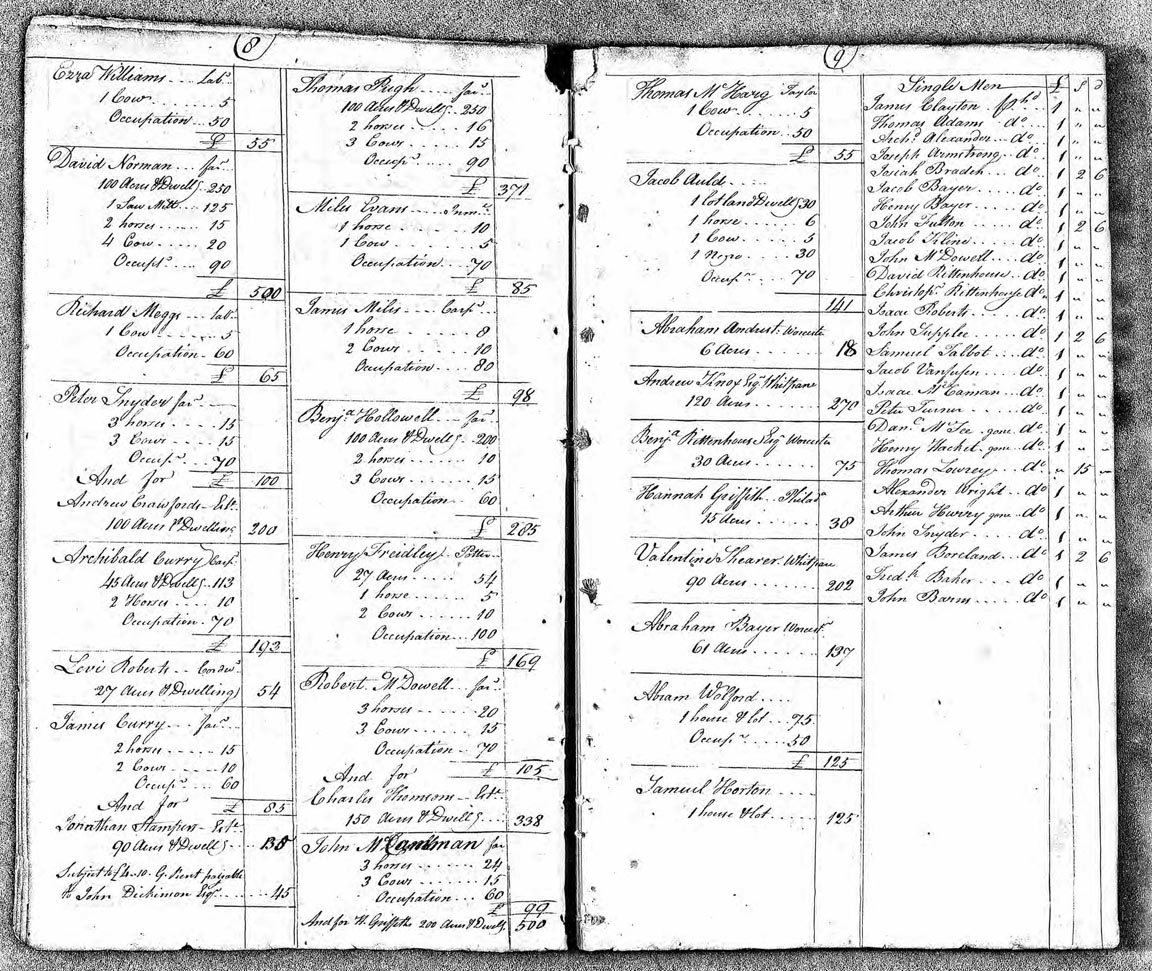 8
Ezra Williams .... Labr
1 Cow ........ 5
Occupation .. 50
£ 55
David Norman .... far
100 Acres & Dwellg .. 250
1 Saw Mill .. 125
2 horses .... 15
4 Cow .... 20
Occupt .... 90
£ 500
Richard Meggs ... Labr
1 Cow ....... 5
Occupation .. 60
£ 65
Peter Snyder far ...
3 horses ...... 15
3 Cows ...... 15
Occupn .... 70
And for £ 100
Andrew Crawfords .. Estt
100 Acres & Dwelling 200
Archibald Curry Carp
45 Acres & Dwellg .. 113
2 Horses .... 10
Occupation .. 70
£ 193
Levi Roberts ... Cordwr
27 Acres & Dwelling 54
James Curry .... far
2 horses ...... 15
2 Cows ...... 10
Occupn .... 60
And for £ 85
Jonathan Estt
90 Acres & Dwellg .... 138
Subject to G. Rent payable
to John Dickinson Esqr ...... 45
Thomas Pugh .... far
100 Acres & Dwellg .. 250
2 horses .... 16
3 Cows .... 15
Occupn .... 90
£ 371
Miles Evans .... Inmt
1 horse ...... 10
1 Cow ...... 5
Occupation .... 70
£ 85
James Miles ... Carpr
1 horse ...... 8
2 Cows ...... 10
Occupation .... 80
£ 98
Benja Hollowell .. far
100 Acres & Dwellg .. 200
2 horses .... 10
3 Cows .... 15
Occupation .. 60
£ 285
Henry Freidley .. Potter
27 Acres .... 54
1 horse .... 5
2 Cows .... 10
Occupation .. 100
£ 169
Robert McDowell .. far
3 horses .... 20
3 Cows .... 15
Occupation .. 70
And for £ 105
Charles Thomsons .. Estt
150 Acres & Dwellg .... 338
John McCantman far
3 horses .... 24
3 Cows .... 15
Occupation .. 60
£ 99
And for W. Griffiths 200 Acres & Dwellg 500
9
Thomas McHarg Taylor
1 Cow ...... 5
Occupation .. 50
£ 55
Jacob Auld .....
1 lot land & Dwellg 30
1 horse .... 6
1 Cow .... 5
1 Negro .... 30
Occupn .... 70
141
Abraham Andrs Worcester
6 Acres ........ 18
Andrew Knox Esqr Whitpain
120 Acres ....... 270
Benja Rittenhouse Esqr Worcester
30 Acres ........ 75
Hannah Griffith .. Philada
15 Acres ....... 38
Valentine Shearer. Whitpain
90 Acres ....... 202
Abraham Bayer Worcestr
61 Acres ....... 137
Abram Wolford ....
1 house & lot .... 75
Occupn .... 50
£ 125
Samuel Horton .....
1 house & lot ..... 125
Single Men £ s d
James Clayton 1 " "
Thomas Adams do ... 1 " "
Archd Alexander .. do .. 1 " "
Joseph Armstrong .. do .. 1 " "
Josiah Bradeh do .. 1 2 6
Jacob Bayer do 1 " "
Henry Bayer .... do 1 " "
John Fulton .... do .. 1 2 6
Jacob Kline .... do 1 " "
John McDowell .... do 1 " "
David Rittenhouse ... do 1 " "
Christopr Rittenhouse do .. 1 " "
Isaac Roberts ... do 1 " "
John Supplee .... do 1 2 6
Samuel Talbot .... do 1 " "
Jacob Vanfusen .. do 1 " "
Isaac McCaman .. do 1 " "
Peter Turner .... do 1 " "
Danl McFee . gone . do 1 " "
Henry Hachel . gone .. do 1 " "
Thomas Lowrey .. do " 15 "
Alexander Wright .. do 1 " "
Arthur Hurry gone .. do 1 " "
John Snyder .... do 1 " "
James Boreland ... do 1 2 6
Fredk Baker .... do 1 " "
John Barns ..... do 1 " "